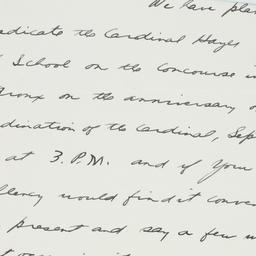 We have plan
edicate the Cardinal Hayes
School on the Concourse in
ronx on the anniversary o
dination of the Cardinal, Sep
at 3. P.M. and if Your
llency would find it conve
present and say a few w